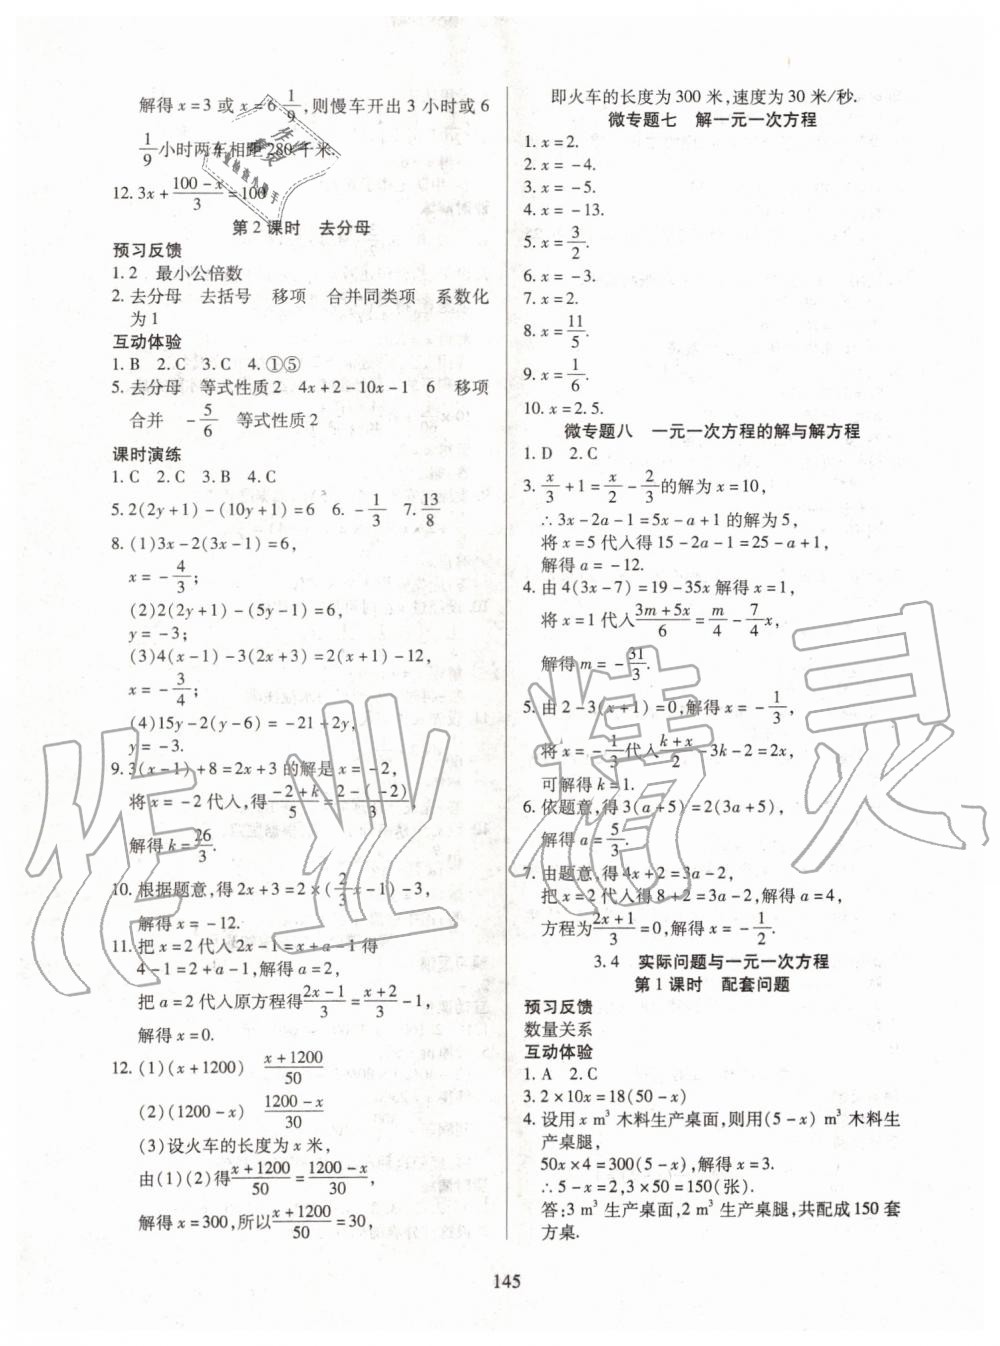 解得 x=3 或 x=6 1/9,则慢车开出 3 小时或 6
1/9小时两车相距280千米.
12. 3x+(100-x)/3=100
第 2 课时　去分母
预习反馈
1. 2　最小公倍数
2. 去分母　去括号　移项　合并同类项　系数化
为 1
互动体验
1. B　2. C　3. C　4. ①⑤
5. 去分母　等式性质 2　4x+2-10x-1　6　移项
合并　-5/6　等式性质 2
课时演练
1. C　2. C　3. B　4. C
5. 2(2y+1)-(10y+1)=6　6. -1/3　7. 13/8
8. (1)3x-2(3x-1)=6,
x=-4/3;
(2)2(2y+1)-(5y-1)=6,
y=-3;
(3)4(x-1)-3(2x+3)=2(x+1)-12,
x=-3/4;
(4)15y-2(y-6)=-21+2y,
y=-3.
9. 3(x-1)+8=2x+3 的解是 x=-2,
将 x=-2 代入,得(-2+k)/5=(2-(-2))/3,
解得 k=26/3.
10. 根据题意,得 2x+3=2×(2/3x-1)-3,
解得 x=-12.
11. 把 x=2 代入 2x-1=x+a-1 得
4-1=2+a-1,解得 a=2,
把 a=2 代入原方程得(2x-1)/3=(x+2)/3-1,
解得 x=0.
12. (1)(x+1200)　(x+1200)/50
(2)(1200-x)　(1200-x)/30
(3)设火车的长度为 x 米,
由(1)(2)得(x+1200)/50=(1200-x)/30,
解得 x=300,所以(x+1200)/50=30,
即火车的长度为 300 米,速度为 30 米/秒.
微专题七　解一元一次方程
1. x=2.
2. x=-4.
3. x=-5.
4. x=-13.
5. x=3/2.
6. x=-3.
7. x=2.
8. x=11/5.
9. x=1/6.
10. x=2.5.
微专题八　一元一次方程的解与解方程
1. D　2. C
3. x/3+1=x/2-2/3的解为 x=10,
∴3x-2a-1=5x-a+1 的解为 5,
将 x=5 代入得 15-2a-1=25-a+1,
解得 a=-12.
4. 由 4(3x-7)=19-35x 解得 x=1,
将 x=1 代入(3m+5x)/6=m/4-7/4x,
解得 m=-31/3.
5. 由 2-3(x+1)=0,解得 x=-1/3,
将 x=-1/3代入(k+x)/2-3k-2=2x,
可解得 k=1.
6. 依题意,得 3(a+5)=2(3a+5),
解得 a=5/3.
7. 由题意,得 4x+2=3a-2,
把 x=2 代入得 8+2=3a-2,解得 a=4,
方程为(2x+1)/3=0,解得 x=-1/2.
3.4　实际问题与一元一次方程
第 1 课时　配套问题
预习反馈
数量关系
互动体验
1. A　2. C
3. 2×10x=18(50-x)
4. 设用 x m³ 木料生产桌面,则用(5-x) m³ 木料生
产桌腿,
50x×4=300(5-x),解得 x=3.
∴5-x=2,3×50=150(张).
答:3 m³ 生产桌面,2 m³ 生产桌腿,共配成 150 套
方桌.
145
作业精灵